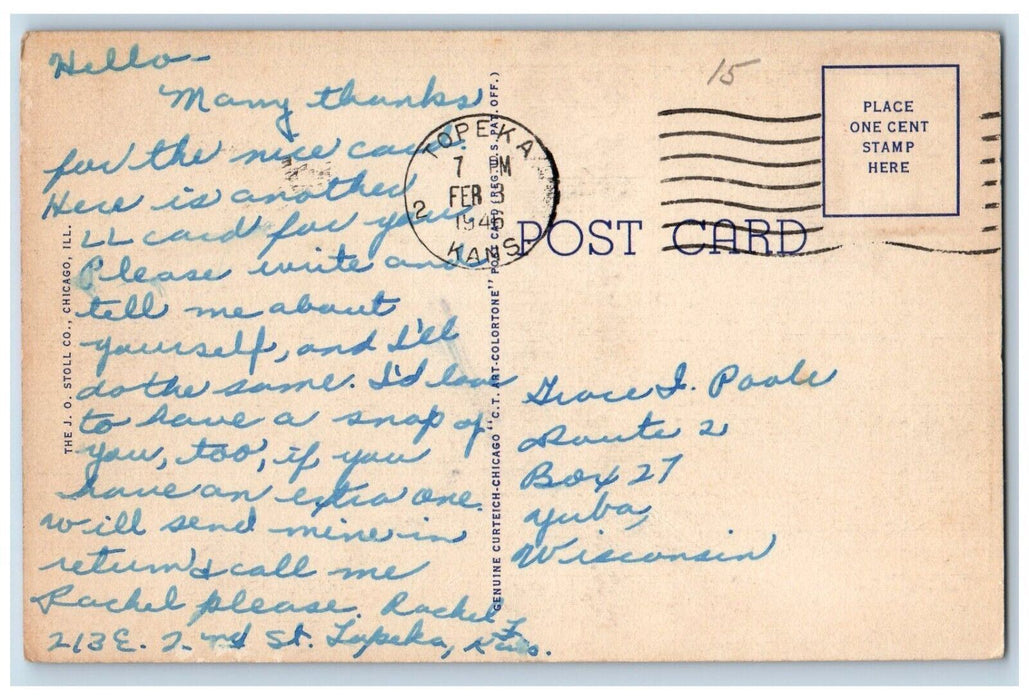 Hello-
Many thanks
for the nice card.
Here is another
LL card for you
Please write and
tell me about
yourself, and I'll
do the same. I'd love
to have a snap of
you, too, if you
have an extra one.
will send mine in
return & call me
Rachel please. Rachel F.
213 E. 2nd St. Topeka, Kans.
THE J. O. STOLL CO., CHICAGO, ILL.
GENUINE CURTEICH-CHICAGO "C.T. ART-COLORTONE" POST CARD (REG. U.S. PAT. OFF.)
TOPEKA
7 PM
FEB 3
2 1946
KANS
POST CARD
15
PLACE
ONE CENT
STAMP
HERE
Grace I. Poole
Route 2
Box 27
Yuba,
Wisconsin